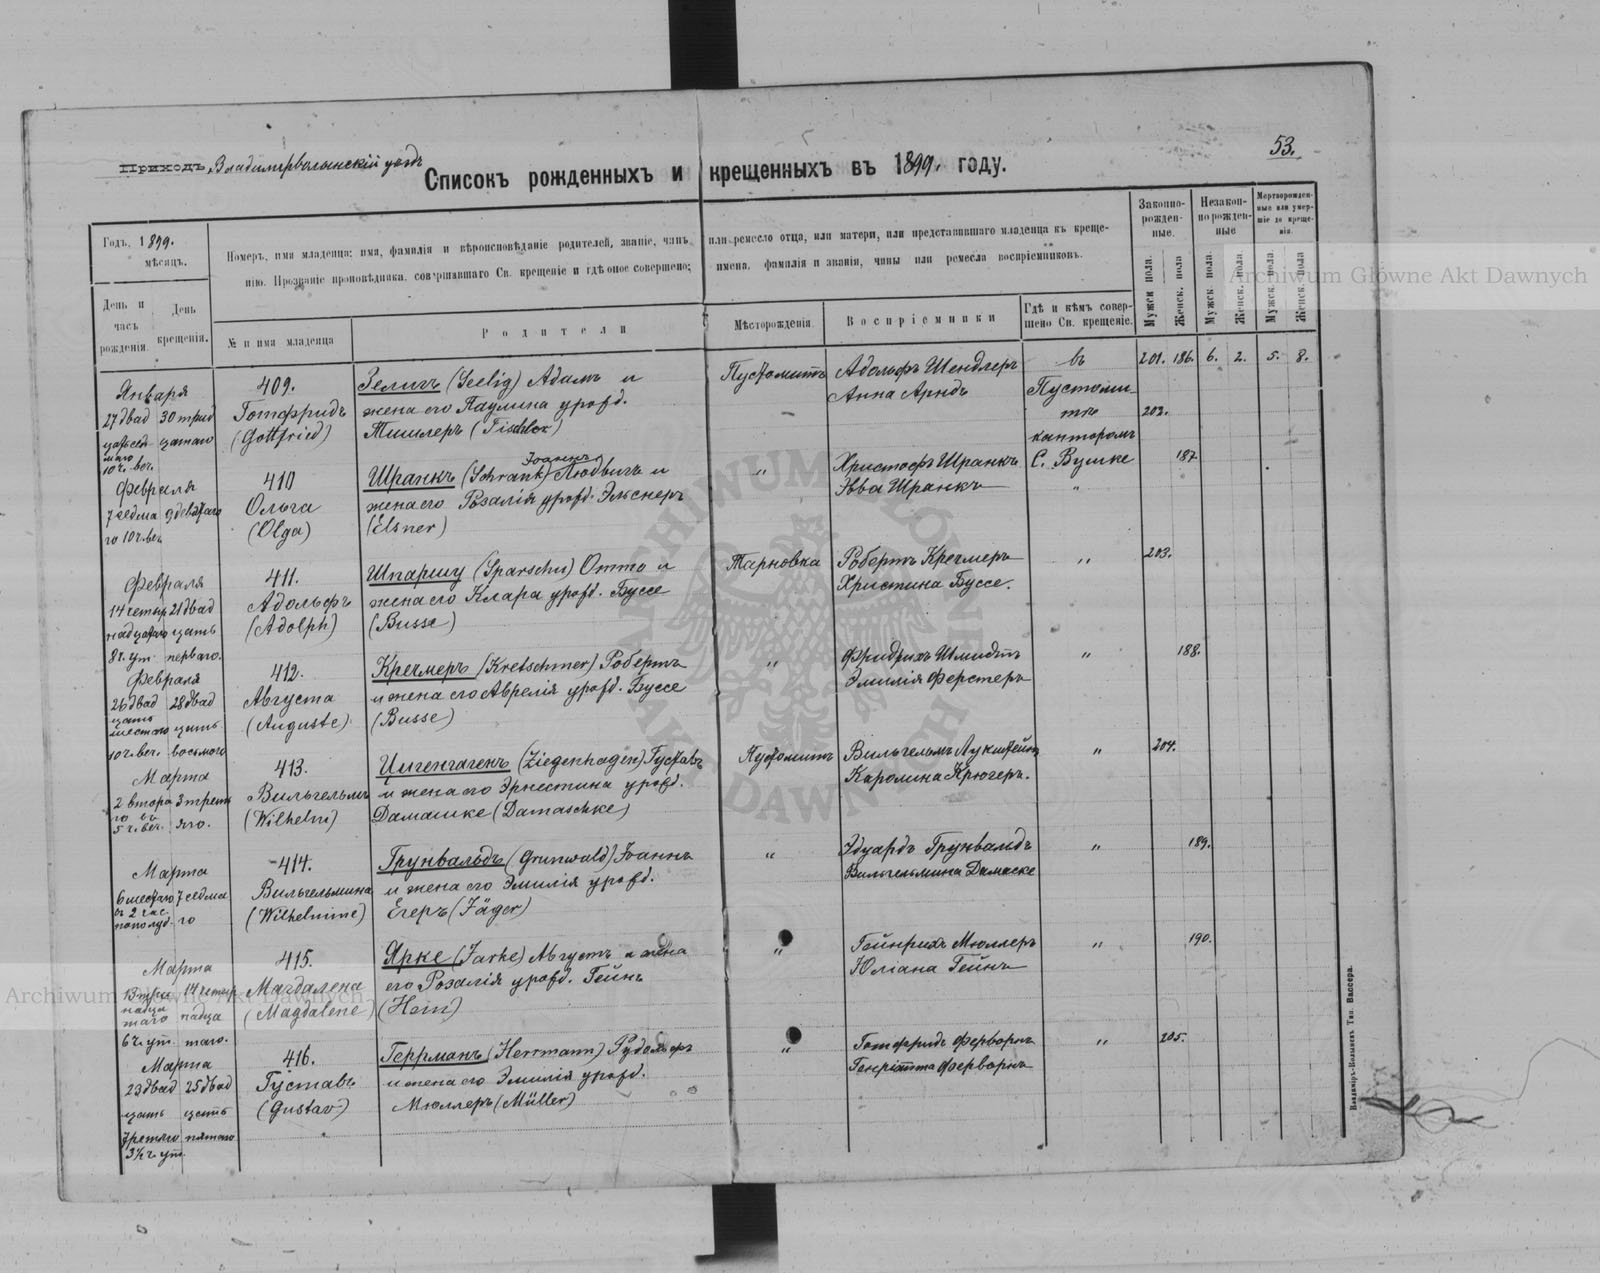 53.
Приходъ Владимирволынскій уѣздъ
Списокъ рожденныхъ и крещенныхъ въ 1899. году.
Годъ, 1899.
мѣсяцъ.
Номеръ, имя младенца; имя, фамилія и вѣроисповѣданіе родителей, званіе, чинъ или ремесло отца, или матери, или представившаго младенца къ креще-
нію. Прозваніе проповѣдника, совершавшаго Св. крещеніе и гдѣ оное совершено; имена, фамилія и званія, чины или ремесла воспріемниковъ.
Законно-
рожден-
ные.
Незакон-
но рожден-
ные
Мертворожден-
ные или умер-
шіе до креще-
нія.
День и
часъ
рожденія.
День
крещенія.
№ и имя младенца
Родители
Мѣсторожденія.
Воспріемники
Гдѣ и кѣмъ совер-
шено Св. крещеніе.
Мужск пола.
Женск. пола
Мужск пола.
Женск. пола.
Мужск. пола.
Женск. пола
201. 186. 6. 2. 5. 8.
Января
27 двад 30 трид
цать сед цатаго
маго
10 ч. веч.
409.
Готфридъ
(Gottfried)
Зелигъ (Seelig) Адамъ и
жена его Паулина урожд.
Тишлеръ (Tischler)
Пустомитъ
Адольфъ Шендлеръ
Анна Арндъ
въ
Пустоми-
тѣ
канторомъ
С. Вушке
202.
Февраля
7 седма 9 девятаго
го 10 ч. веч
410
Ольга
(Olga)
Іоаннъ
Шранкъ (Schrank) Людвигъ и
жена его Розалія урожд. Эльснеръ
(Elsner)
"
Христофъ Шранкъ
Эва Шранкъ
"
187
Февраля
14 четыр 21 двад
надцатаго цать
8 ч. ут. перваго.
411.
Адольфъ
(Adolph)
Шпаршу (Sparschu) Отто и
жена его Клара урожд. Буссе
(Busse)
Тарновка
Робертъ Кречмеръ
Христина Буссе.
"
203.
Февраля
26 двад 28 двад
цать цать
шестаго
10 ч. веч. восьмаго
412.
Августа
(Auguste)
Кречмеръ (Kretschmer) Робертъ
и жена его Аврелія урожд. Буссе
(Busse)
"
Фридрихъ Шмидтъ
Эмилія Ферстеръ
"
188.
Марта
2 втора 3 треть
го въ
5 ч. веч. яго.
413.
Вильгельмъ
(Wilhelm)
Цигенгагенъ (Ziegenhagen) Густавъ
и жена его Эрнестина урожд.
Дамашке (Damaschke)
Пустомитъ
Вильгельмъ Лукштейтъ
Каролина Крюгеръ.
"
204.
Марта
6 шестаго 7 седма
въ 2 час.
пополуд. го
414.
Вильгельмина
(Wilhelmine)
Грунвальдъ (Grunwald) Іоаннъ
и жена его Эмилія урожд.
Егеръ (Jäger)
"
Эдуардъ Грунвальдъ
Вильгельмина Дамаске
"
189.
Марта
13 три 14 четыр
надца надца
таго
6 ч. ут. таго.
415.
Магдалена
(Magdalene)
Ярке (Jarke) Августъ и жена
его Розалія урожд. Гейнъ
(Hein)
"
Гейнрихъ Мюллеръ
Юліана Гейнъ
"
190.
Марта
23 двад 25 двад
цать цать
третяго пятаго
3½ ч. ут.
416.
Густавъ
(Gustav)
Геррманъ (Herrmann) Рудольфъ
и жена его Эмилія урожд.
Мюллеръ (Müller)
"
Готфридъ Ферворнъ
Генріетта Ферворнъ
"
205.
Владиміръ-Волынскъ Тип. Вассера.
Archiwum Główne Akt Dawnych
Archiwum Główne Akt Dawnych
ARCHIWUM GŁÓWNE AKT DAWNYCH